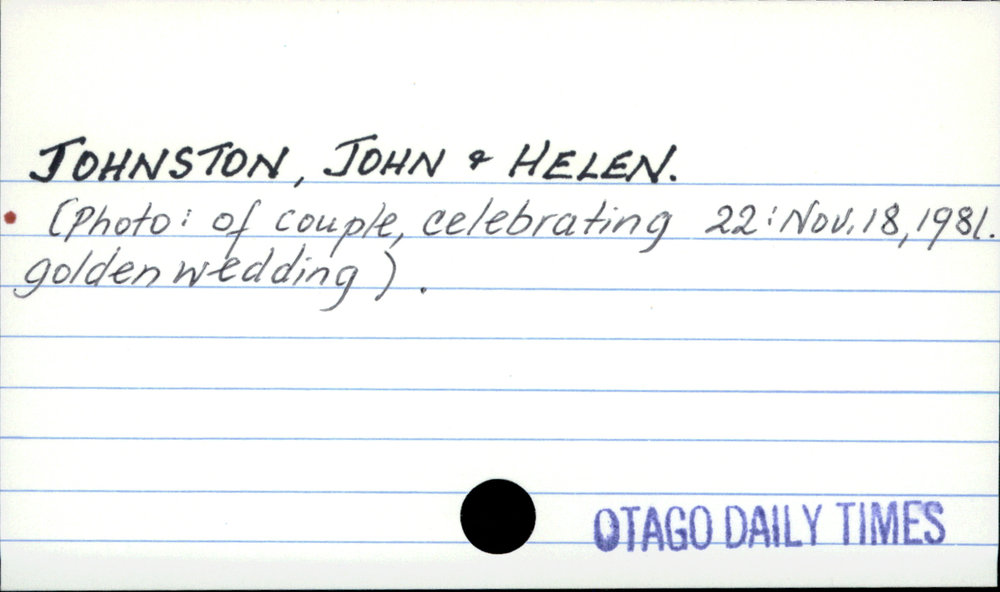 JOHNSTON, JOHN & HELEN.
(Photo: of couple, celebrating 22: Nov. 18, 1981.
golden wedding).
OTAGO DAILY TIMES